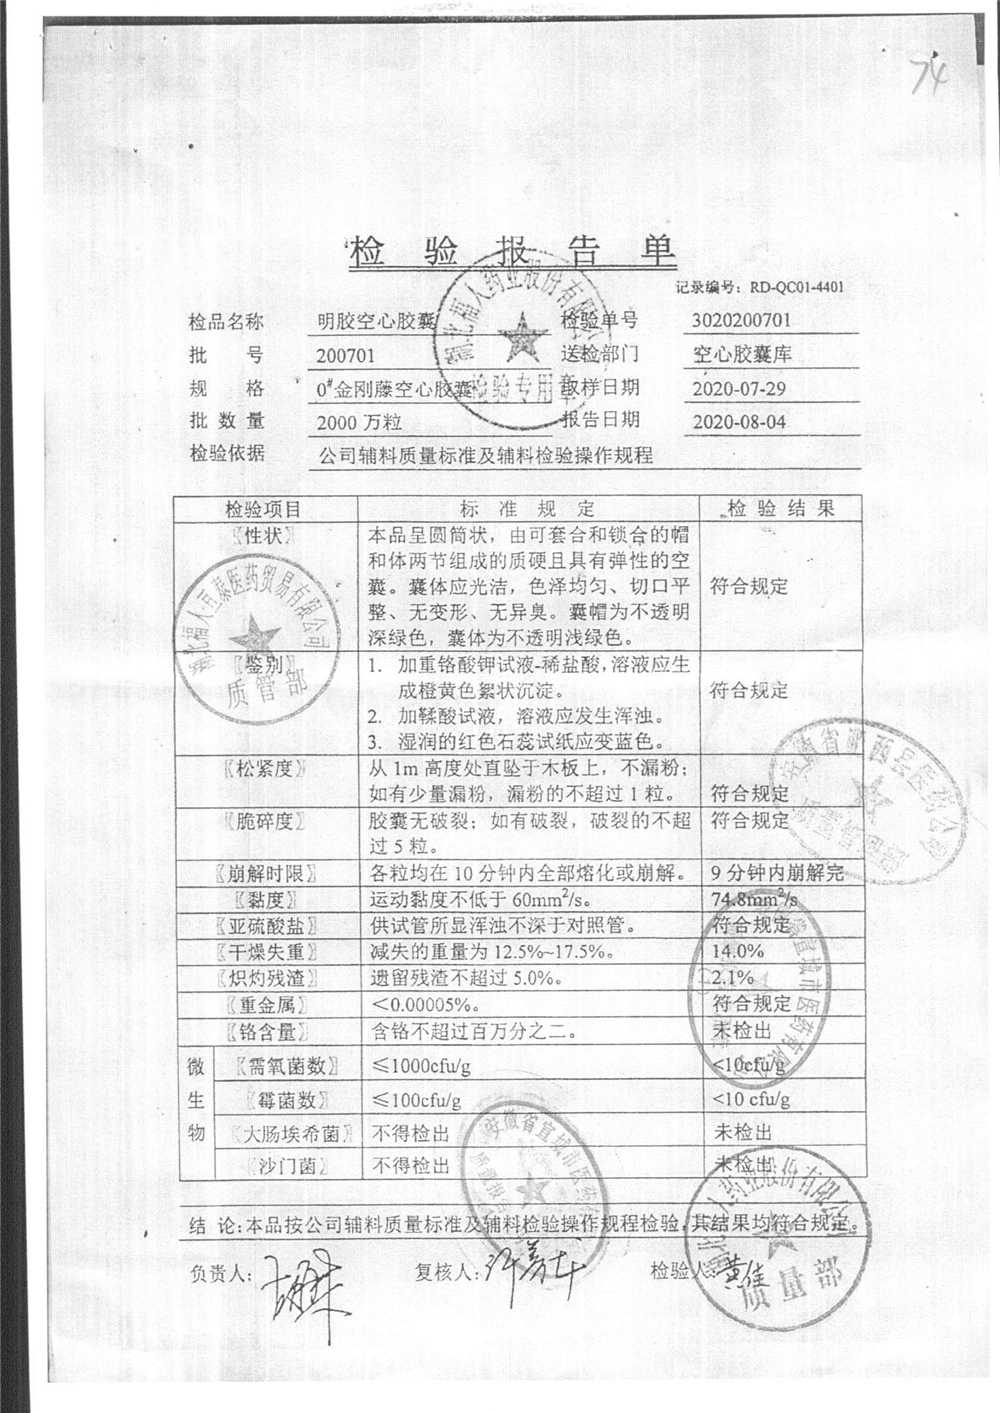 74
检验报告单
记录编号：RD-QC01-4401
检品名称 明胶空心胶囊 检验单号 3020200701
批号 200701 送检部门 空心胶囊库
规格 0#金刚藤空心胶囊 取样日期 2020-07-29
批数量 2000万粒 报告日期 2020-08-04
检验依据 公司辅料质量标准及辅料检验操作规程
检验专用章
检验项目 标准规定 检验结果
〖性状〗 本品呈圆筒状，由可套合和锁合的帽
和体两节组成的质硬且具有弹性的空
囊。囊体应光洁，色泽均匀、切口平 符合规定
整、无变形、无异臭。囊帽为不透明
深绿色，囊体为不透明浅绿色。
〖鉴别〗 1. 加重铬酸钾试液-稀盐酸,溶液应生
成橙黄色絮状沉淀。 符合规定
2. 加鞣酸试液，溶液应发生浑浊。
3. 湿润的红色石蕊试纸应变蓝色。
质管部
〖松紧度〗 从1m高度处直坠于木板上，不漏粉；
如有少量漏粉，漏粉的不超过1粒。 符合规定
〖脆碎度〗 胶囊无破裂；如有破裂，破裂的不超 符合规定
过5粒。
〖崩解时限〗 各粒均在10分钟内全部熔化或崩解。 9分钟内崩解完
〖黏度〗 运动黏度不低于60mm²/s。 74.8mm²/s
〖亚硫酸盐〗 供试管所显浑浊不深于对照管。 符合规定
〖干燥失重〗 减失的重量为12.5%~17.5%。 14.0%
〖炽灼残渣〗 遗留残渣不超过5.0%。 2.1%
〖重金属〗 ＜0.00005%。 符合规定
〖铬含量〗 含铬不超过百万分之二。 未检出
微生物
〖需氧菌数〗 ≤1000cfu/g <10cfu/g
〖霉菌数〗 ≤100cfu/g <10 cfu/g
〖大肠埃希菌〗 不得检出 未检出
〖沙门菌〗 不得检出 未检出
结 论:本品按公司辅料质量标准及辅料检验操作规程检验,其结果均符合规定。
负责人: 复核人: 检验人: 黄佳
质量部